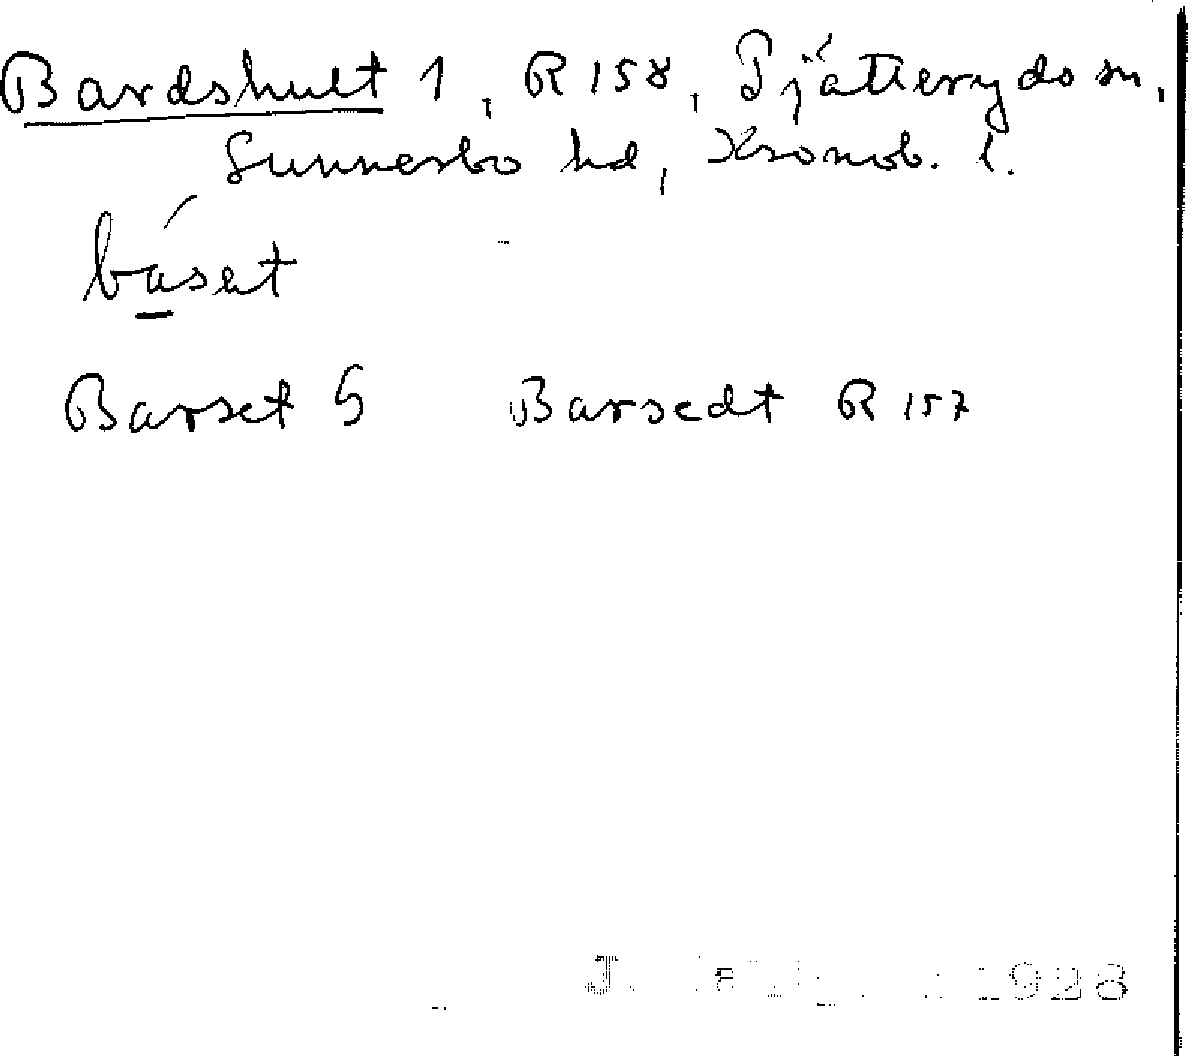 Bardshult 1, R 158, Pjätteryds sn,
Sunnerbo hd, Kronob. l.
básет
Barset G Barsedt R 157
J. 1928